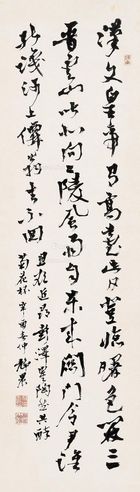 漢文皇帝有高臺此日登臨曙色開三
晉雲山皆北向二陵風雨自東來關門令尹誰
能識河上僊翁去不回
且欲近尋彭澤宰陶然共醉
菊花杯 辛酉春仲 靜農